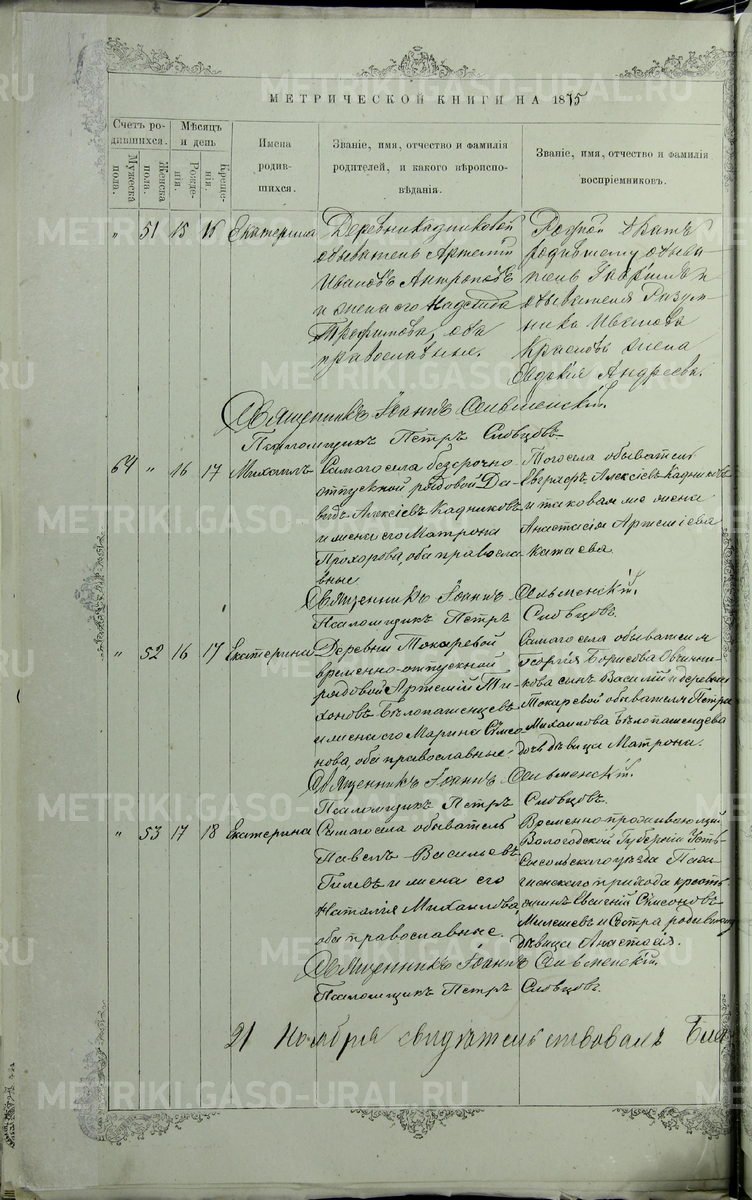 МЕТРИЧЕСКОЙ КНИГИ НА 1875
Счетъ ро-
дившихся.
Мужеска
пола.
Женска
пола.
Мѣсяцъ
и день
Рожде-
нія.
Креще-
нія.
Имена
родив-
шихся.
Званіе, имя, отчество и фамилія
родителей, и какого вѣроиспо-
вѣданія.
Званіе, имя, отчество и фамилія
воспріемниковъ.
" 51 15 16 Екатерина
Деревни Кадниковой
обыватель Артемій
Ивановъ Антроповъ
и жена его Надежда
Трофимова, оба
православные.
Родной братъ
родившему обыва
тель Гавріилъ и
обывателя Разум
ника Иванова
Красновъ жена
Евдокія Андреева.
Священникъ Іоаннъ Сельменскій.
Псаломщикъ Петръ Словцовъ
64 " 16 17 Михаилъ
Самаго села безсрочно
отпускной рядовой Да-
видъ Алексіевъ Кадниковъ
и жена его Матрона
Прохорова, оба правосла
вные
Того села обыватель
Алексіевъ Кадниковъ
и таковая же жена
Анастасія Артеміева
Катаева
Священникъ Іоаннъ Сельменскій.
Псаломщикъ Петръ Словцовъ.
" 52 16 17 Екатерина
Деревни Токаревой
временно-отпускной
рядовой Артемій Ти-
хоновъ Бѣлопашенцевъ
и жена его Марина Симео
нова, оба православные.
Самаго села обывателя
Георгія Борисова Овчинни-
кова сынъ Василій и деревни
Токаревой обывателя Петра
Михаилова Бѣлопашенцева
дочь дѣвица Матрона.
Священникъ Іоаннъ Сельменскій.
Псаломщикъ Петръ Словцовъ.
" 53 17 18 Екатерина
Самаго села обыватель
Павелъ Васильевъ
Гилевъ и жена его
Наталія Михаилова,
оба православные.
Временно проживающій
Вологодской Губерніи Усть-
Сысольскаго уѣзда
прихода кресть
янинъ Евсигній Симеоновъ
Милешевъ и Сестра родившему
дѣвица Анастасія.
Священникъ Іоаннъ Сельменскій.
Псаломщикъ Петръ Словцовъ.
21 Ноября свидѣтельствовалъ Бла
METRIKI.GASO-URAL.RU